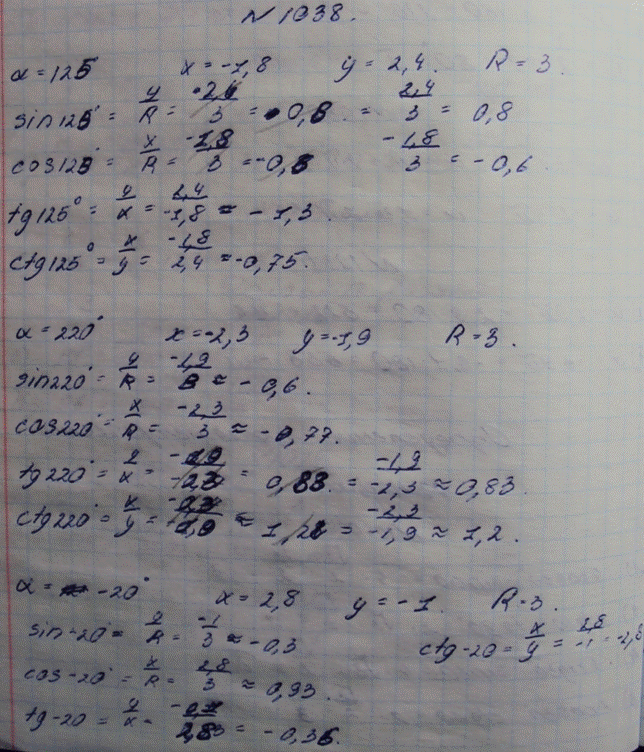 N 1038.
α = 125° x = -1,8 y = 2,4. R = 3.
sin 125° = y/R = 2,4/3 = 0,8. = 2,4/3 = 0,8
cos 125° = x/R = -1,8/3 = -0,6 -1,8/3 = -0,6.
tg 125° = y/x = 2,4/-1,8 ≈ -1,3.
ctg 125° = x/y = -1,8/2,4 ≈ -0,75.
α = 220° x = -2,3 y = -1,9 R = 3.
sin 220° = y/R = -1,9/3 ≈ -0,6.
cos 220° = x/R = -2,3/3 ≈ -0,77.
tg 220° = y/x = -1,9/-2,3 = 0,83. = -1,9/-2,3 ≈ 0,83.
ctg 220° = x/y = ≈ = -2,3/-1,9 ≈ 1,2.
α = -20° x = 2,8 y = -1 R = 3.
sin -20° = y/R = -1/3 ≈ -0,3
ctg -20 = x/y = 2,8/-1 = -2,8
cos -20° = x/R = 2,8/3 ≈ 0,93.
tg -20 = y/x = = -0,36.